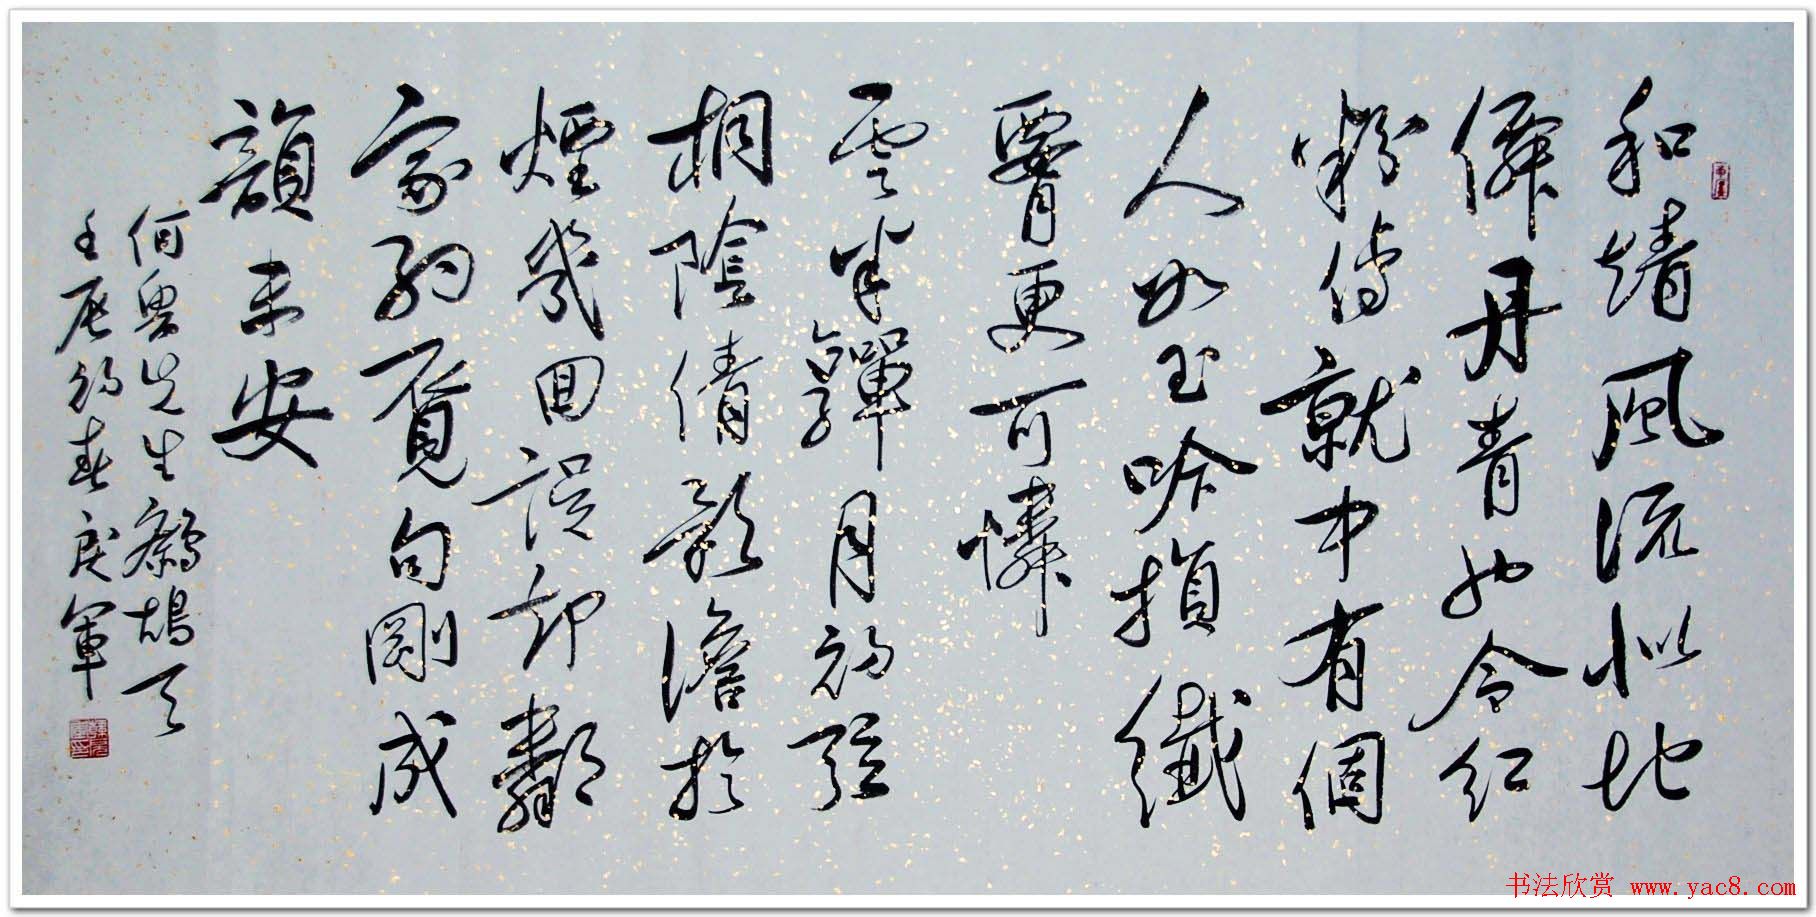 和靖風流似地
僊丹青也令紅
粉傳就中有個
人如玉吟損纖
腰更可憐
雲半嚲月初弦
桐陰倩影澹於
煙幾回誤卻鄰
家約覓句剛成
韻未安
何魯先生鷓鴣天
壬辰初春軍
书法欣赏 www.yac8.com